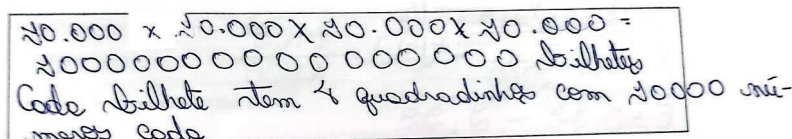 10.000 x 10.000 x 10.000 x 10.000 =
10000000000000000 bilhetes
Cada bilhete tem 4 quadradinhos com 10000 nú-
meros cada